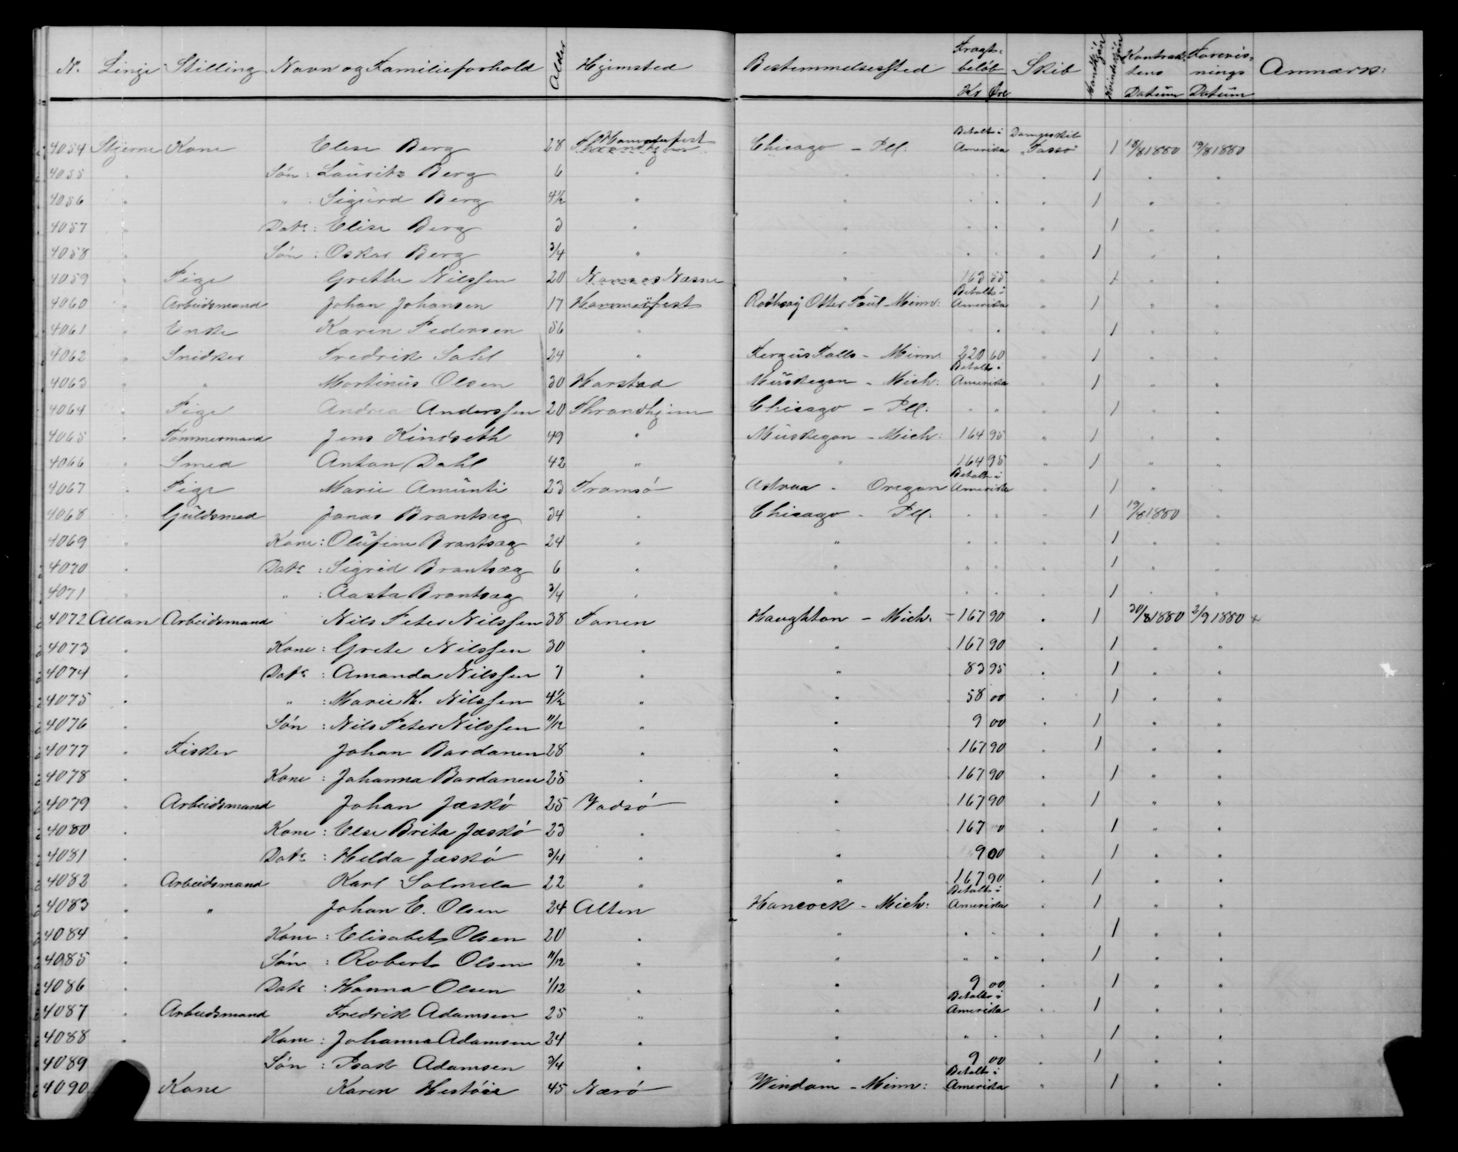 N. Linje Stilling Navn og Familieforhold Alder Hjemsted Bestemmelsessted Fragt-beløb Kr Øre Skib Mandkjøn Kvindekjøn Kontrak-tens Datum Forevis-nings Datum Anmærk:
4054 Stjerne Kone Elise Berg 28 Hammerfest Chicago - Ill. Betalt i Amerika Dampskib "Tasso" 1 18/8 1880 19/8 1880
4055 " Søn: Laurits Berg 6 " " " " 1 " "
4056 " " Sigurd Berg 4½ " " " " 1 " "
4057 " Datr: Elise Berg 3 " " " " 1 " "
4058 " Søn: Oskar Berg ¾ " " " " 1 " "
4059 " Pige Grethe Nilssen 20 Næsne " 163 55 " 1 " "
4060 " Arbeidsmand Johan Johansen 17 Hammerfest Otter Tail - Minn: Betalt i Amerika " 1 " "
4061 " Enke Karen Pedersen 56 " " " " 1 " "
4062 " Snidker Fredrik Sahl 24 " Fergus Falls - Minn 220 60 " 1 " "
4063 " " Martinus Olsen 30 Harstad Muskegon - Mich: Betalt i Amerika " 1 " "
4064 " Pige Andrea Anderssen 20 Throndhjem Chicago - Ill: " " " 1 " "
4065 " Tømmermand Jens Kindseth 49 " Muskegon - Mich: 164 95 " 1 " "
4066 " Smed Anton Dahl 42 " " 164 95 " 1 " "
4067 " Pige Marie Amunti 23 Tromsø Oregon Betalt i Amerika 1 " "
4068 " Guldsmed Jonas Brantsæg 34 " Chicago - Ill. " " " 1 19/8 1880 "
4069 " Kone: Olufine Brantsæg 24 " " " " " 1 " "
4070 " Datr: Sigrid Brantsæg 6 " " " " " 1 " "
4071 " " : Aasta Brantsæg ¾ " " " " " 1 " "
4072 Allan Arbeidsmand Nils Peter Nilssen 38 Tanen Haughton - Mich. 167 90 " 1 30/8 1880 2/9 1880
4073 " Kone: Grete Nilssen 30 " " 167 90 " 1 " "
4074 " Datr: Amanda Nilssen 7 " " 83 95 " 1 " "
4075 " " : Marie K. Nilssen 4½ " " 58 00 " 1 " "
4076 " Søn: Nils Peter Nilssen 11/12 " " 9 00 " 1 " "
4077 " Fisker Johan Bardanen 28 " " 167 90 " 1 " "
4078 " Kone: Johanna Bardanen 25 " " 167 90 " 1 " "
4079 " Arbeidsmand Johan Jæskø 25 Vadsø " 167 90 " 1 " "
4080 " Kone: Else Brita Jæskø 23 " " 167 0 " 1 " "
4081 " Datr: Hilda Jæskø ¾ " " 9 00 " 1 " "
4082 " Arbeidsmand Karl Solmela 22 " " 167 90 " 1 " "
4083 " " Johan E. Olsen 24 Alten Hancock - Mich: Betalt i Amerika " 1 " "
4084 " Kone: Elisabet Olsen 20 " " " " " 1 " "
4085 " Søn: Robert Olsen 11/12 " " " " " 1 " "
4086 " Datr: Hanna Olsen 1/12 " " 9 00 " 1 " "
4087 " Arbeidsmand Fredrik Adamsen 25 " " Betalt i Amerika " 1 " "
4088 " Kone: Johanna Adamsen 24 " " " " " 1 " "
4089 Søn: Isak Adamsen ¾ " " 9 00 " 1 " "
4090 Kone Karen 45 Nærø Windom - Minn: Betalt i Amerika " 1 " "